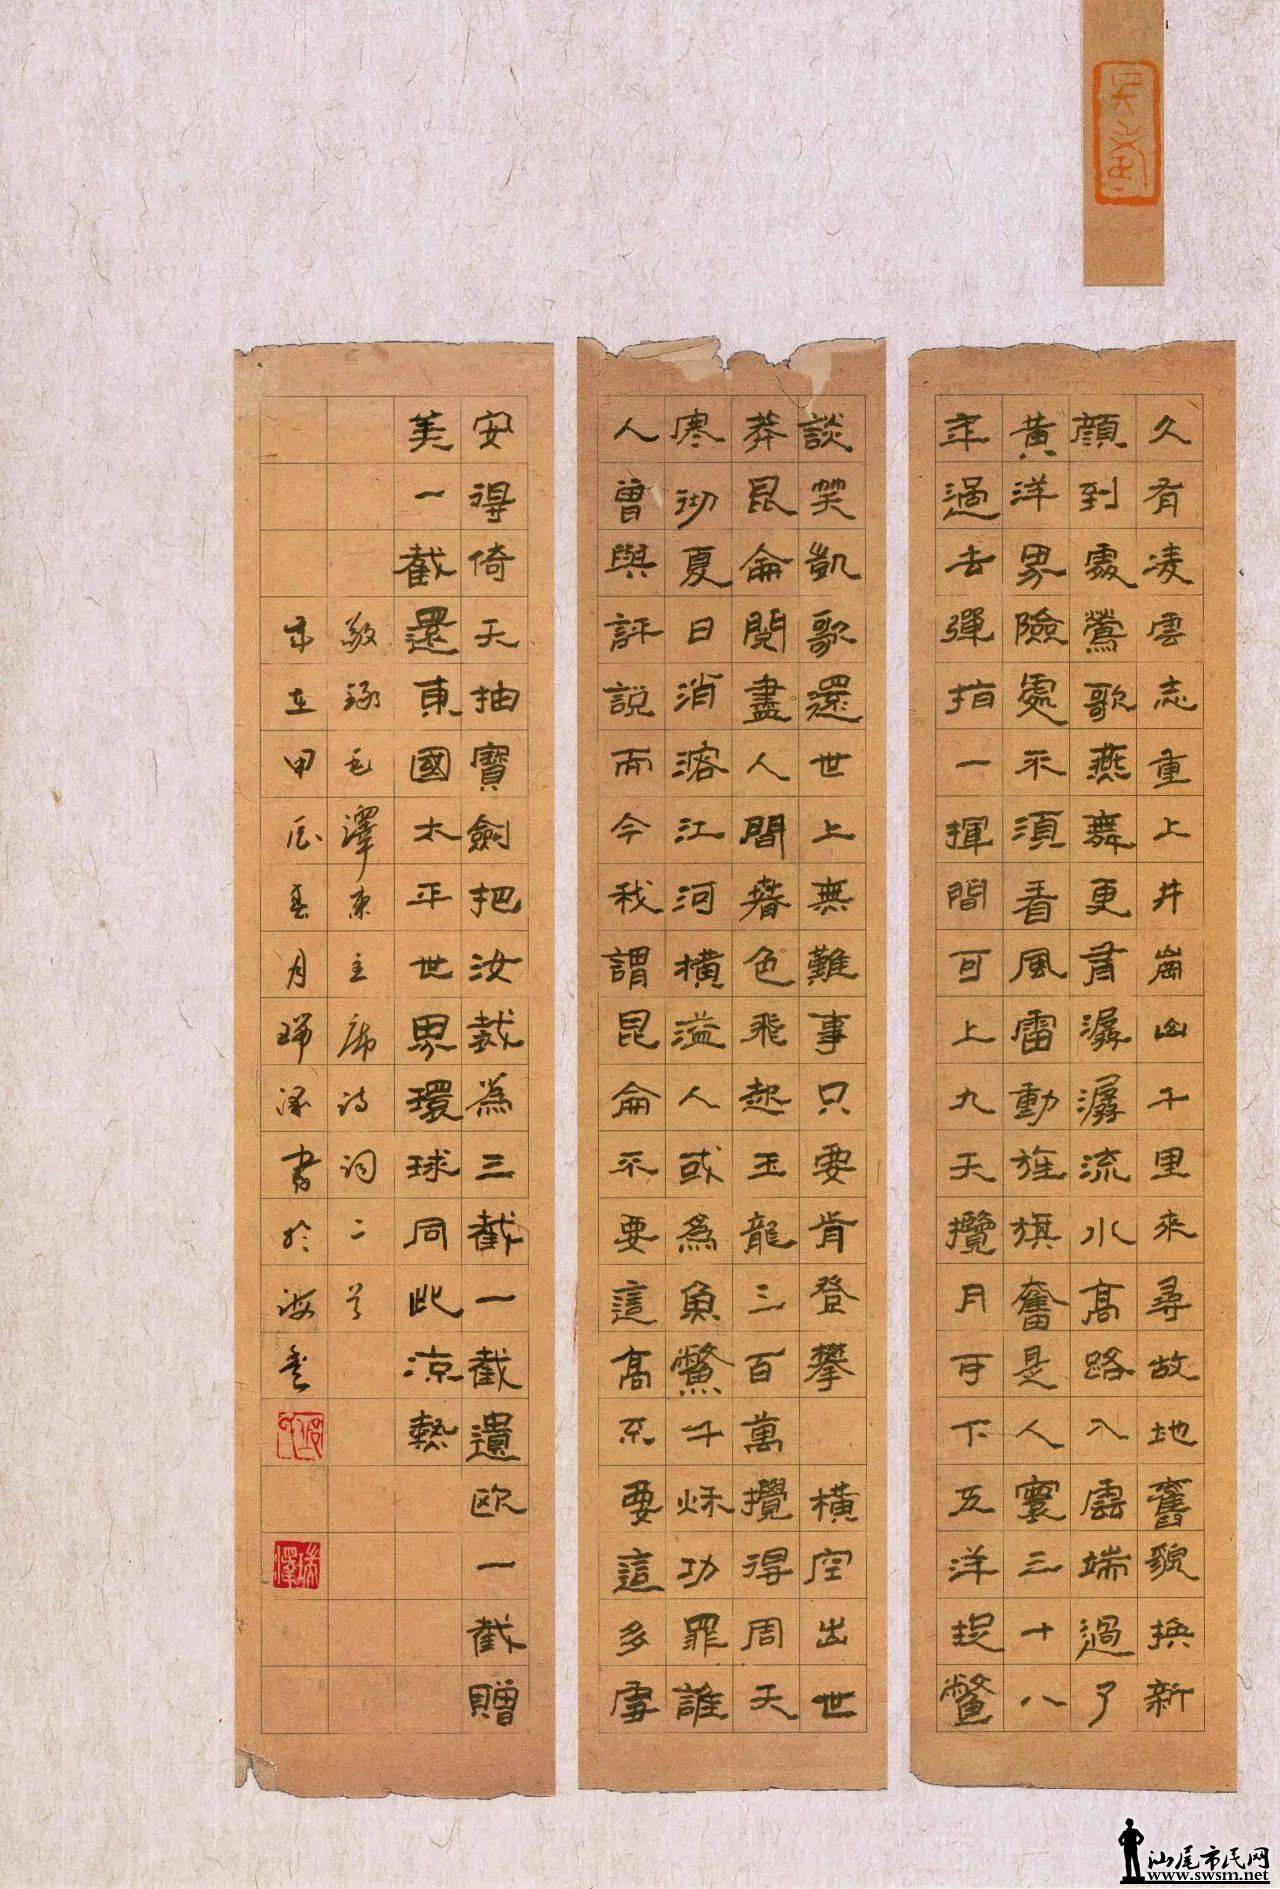 久有凌雲志重上井崗山千里來尋故地舊貌換新
顏到處鶯歌燕舞更有潺潺流水高路入雲端過了
黃洋界險處不須看風雷動旌旗奮是人寰三十八
年過去彈指一揮間可上九天攬月可下五洋捉鱉
談笑凱歌還世上無難事只要肯登攀 橫空出世
莽昆侖閱盡人間春色飛起玉龍三百萬攪得周天
寒彻夏日消溶江河橫溢人或為魚鱉千秋功罪誰
人曾與評說而今我謂昆侖不要這高不要這多雪
安得倚天抽寶劍把汝裁為三截一截遺歐一截贈
美一截還東國太平世界環球同此涼熱
敬錄毛澤東主席诗词二首
歲在甲辰春月瑞澤書於海豐
瑞澤
汕尾市民网
www.swsm.net